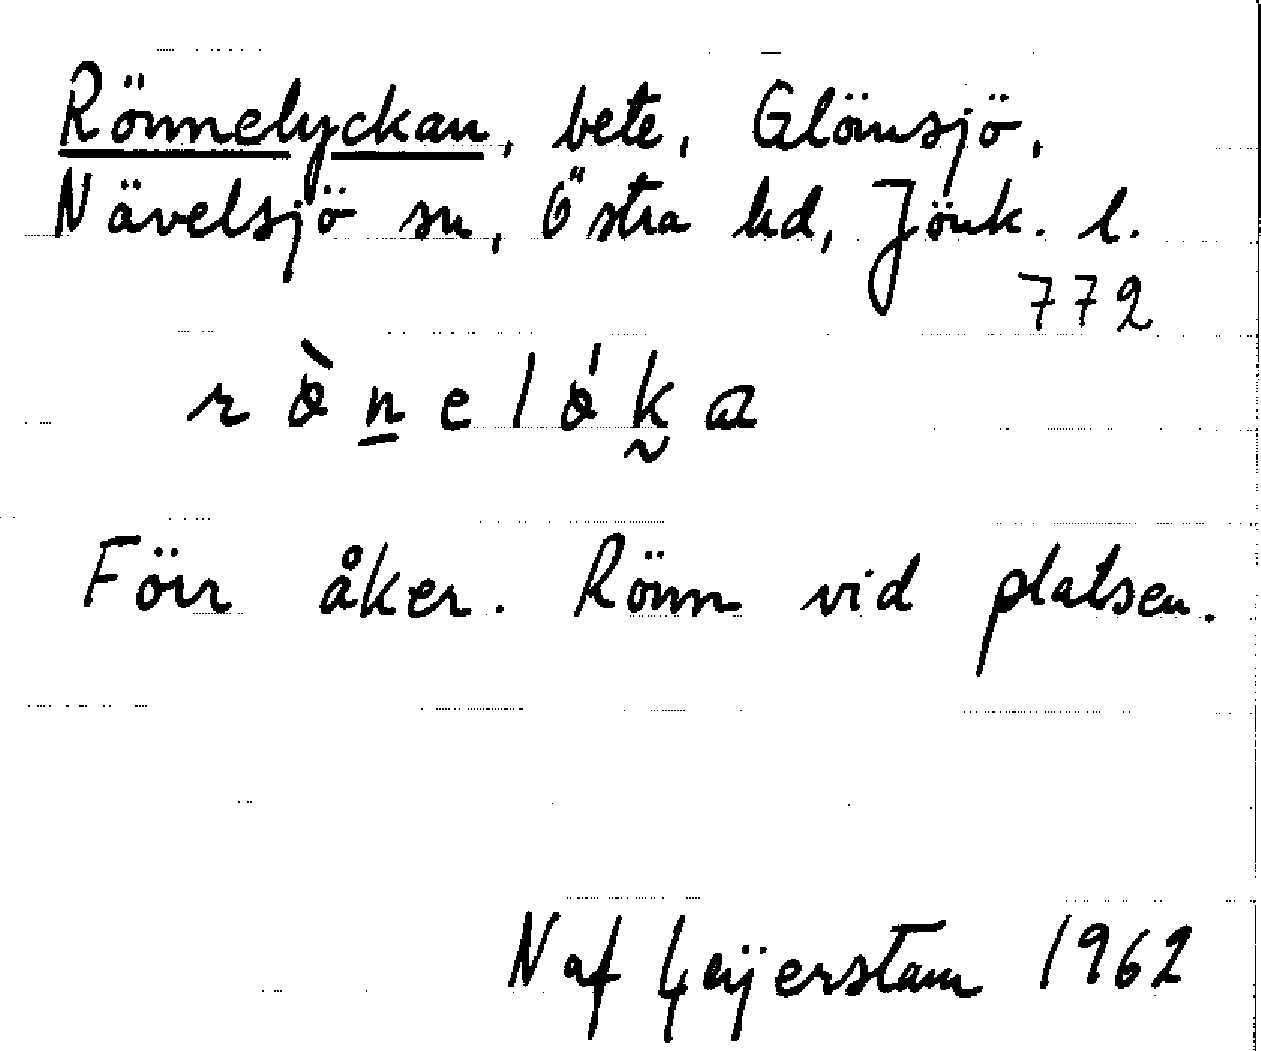 Rönnelyckan, bete, Glömsjö,
Nävelsjö sn, Östra hd, Jönk. l.
772
Förr åker. Rönn vid platsen.
N af Geijerstam 1962